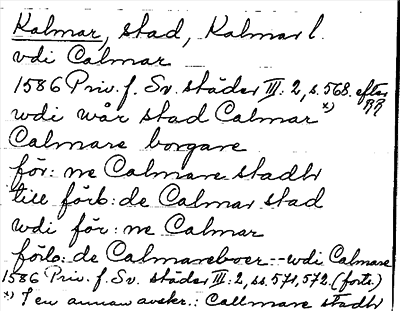 Kalmar, stad, Kalmar l.
vdi Calmar
1586 Priv. f. Sv. städer III: 2, s. 568. efter RR
wdi wår stad Calmar x)
Calmare borgare
för: ne Calmare stadtz
till förb: de Calmar stad
wdi för: ne Calmar
förb: de Calmareboer -- wdi Calmare
1586 Priv. f. Sv. städer III: 2, ss. 571, 572. (forts.)
x) I en annan avskr.: Callmare stadtz